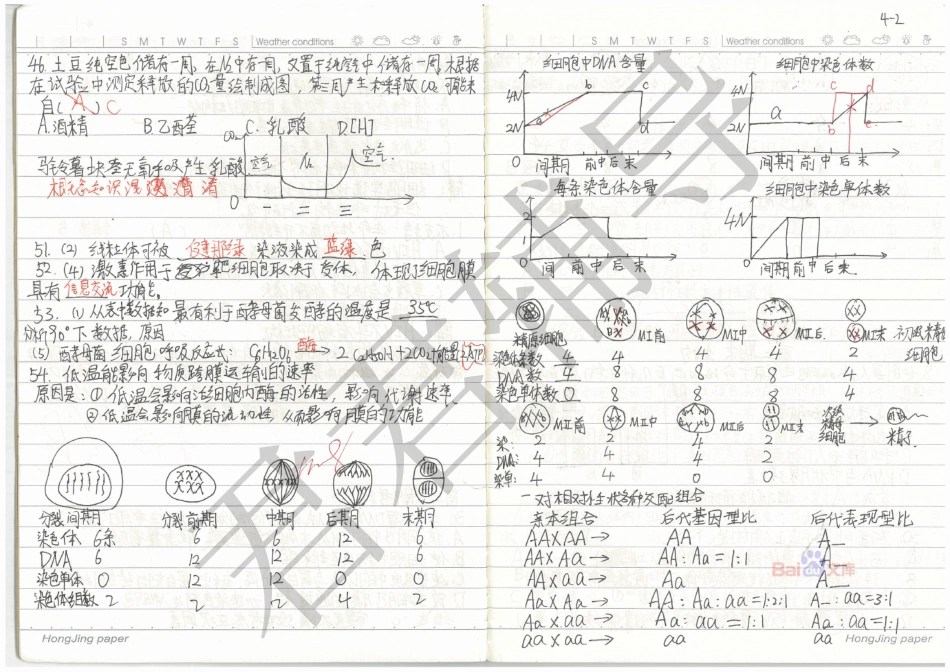 4-2
S M T W T F S Weather conditions
46.土豆纯空色储存一周,在N₂中存一周,又置于纯空中储存一周.根据
在试验中测定释放的CO₂量绘制成图,第一周产生和释放CO₂可能来
自( A )C
A.酒精 B乙酸 C.乳酸 D.[H]
马铃薯块茎无氧呼吸产生乳酸
CO₂
空气 N₂ 空气.
0 一 二 三
51. (2) 线粒体可被 健那绿 染液染成 蓝绿 色
52. (4) 激素作用于靶细胞取决于受体, 体现了细胞膜
具有信息交流功能。
53. (1) 从表中数据知最有利于酵母菌发酵的温度是 35℃
分析90°下数据,原因
(5) 酵母菌细胞呼吸反应式: C₆H₁₂O₆ 酶→ 2C₂H₅OH+2CO₂+能量
54. 低温能影响物质跨膜运输的速率
原因是:①低温会影响活细胞内酶的活性,影响代谢速率.
②低温会影响膜的流动性,从而影响膜的功能
分裂间期 分裂前期 中期 后期 末期
染色体 6条 6 6 12 6
DNA 6 12 12 12 6
染色单体 0 12 12 0 0
染色体组数 2 2 12 4 2
HongJing paper
S M T W T F S Weather conditions
细胞中DNA含量 细胞中染色体数
4N a b c d
2N
0 间期 前中后末
4N a b c d e
2N
间期 前中后末
每条染色体含量 细胞中染色单体数
2
1
0 间 前中后末
4N
0 间期前中后末
精原细胞 MI前 MI中 MI后 MI末 初级精母
细胞
染色体数 4 4 4 4 2
DNA数 4 8 8 8 4
染色单体数 0 8 8 8 4
MII前 MII中 MII后 MII末 次级精母细胞 → 精子
染: 2 2 4 2
DNA: 4 4 4 2
染单: 4 4 0 0
一对相对性状各种交配组合
亲本组合 后代基因型比 后代表现型比
AA×AA→ AA A_
AA×Aa→ AA:Aa=1:1 A_
AA×aa→ Aa A_
Aa×Aa→ AA:Aa:aa=1:2:1 A_:aa=3:1
Aa×aa→ Aa:aa=1:1 Aa:aa=1:1
aa×aa→ aa aa
HongJing paper
君君辅导
Baidu文库